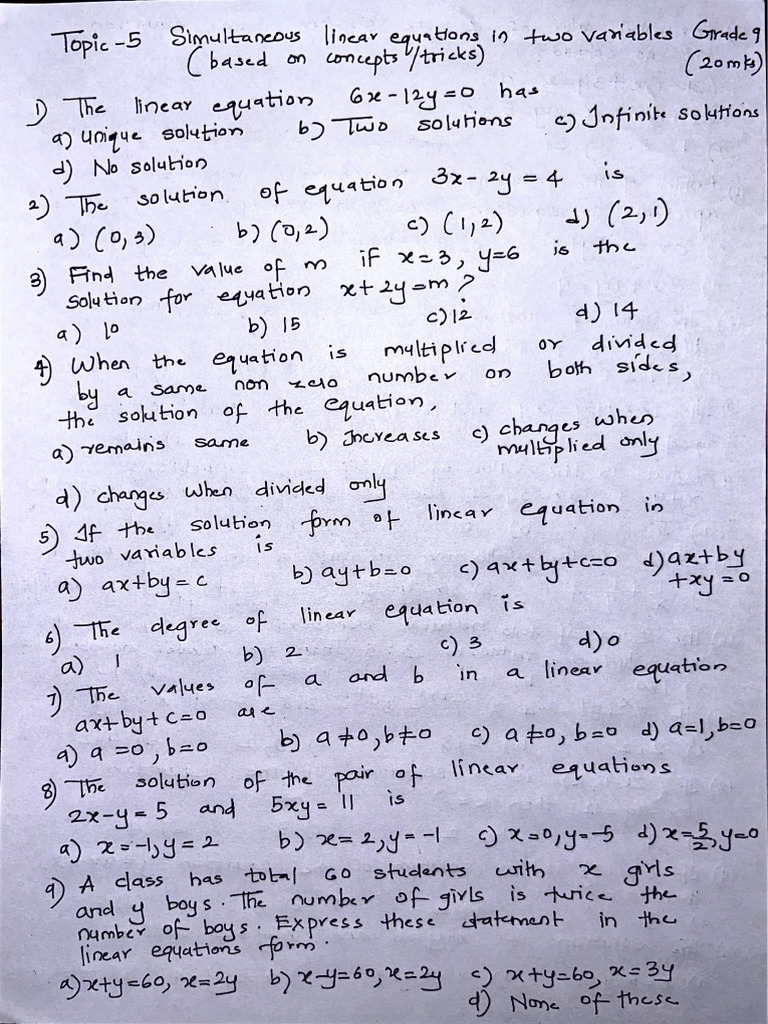 Topic-5 Simultaneous linear equations in two variables Grade 9
(based on concepts/tricks) (20mks)
1) The linear equation 6x-12y=0 has
a) unique solution b) Two solutions c) Infinite solutions
d) No solution
2) The solution of equation 3x-2y=4 is
a) (0,3) b) (0,2) c) (1,2) d) (2,1)
3) Find the value of m if x=3, y=6 is the
solution for equation x+2y=m?
a) 10 b) 15 c) 12 d) 14
4) When the equation is multiplied or divided
by a same non zero number on both sides,
the solution of the equation,
a) remains same b) Increases c) changes when
multiplied only
d) changes when divided only
5) If the solution form of linear equation in
two variables is
a) ax+by=c b) ay+b=0 c) ax+by+c=0 d) ax+by
+xy=0
6) The degree of linear equation is
a) 1 b) 2 c) 3 d) 0
7) The values of a and b in a linear equation
ax+by+c=0 are
a) a=0, b=0 b) a≠0, b≠0 c) a≠0, b=0 d) a=1, b=0
8) The solution of the pair of linear equations
2x-y=5 and 5xy=11 is
a) x=-1, y=2 b) x=2, y=-1 c) x=0, y=-5 d) x=5/2, y=0
9) A class has total 60 students with x girls
and y boys. The number of girls is twice the
number of boys. Express these statement in the
linear equations form.
a) x+y=60, x=2y b) x-y=60, x=2y c) x+y=60, x=3y
d) None of these